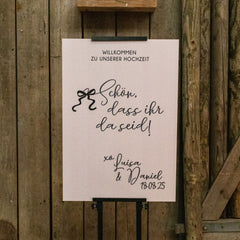 WILLKOMMEN
ZU UNSERER HOCHZEIT
Schön,
dass ihr
da seid!
xo,
Luisa
& Daniel
18.08.25